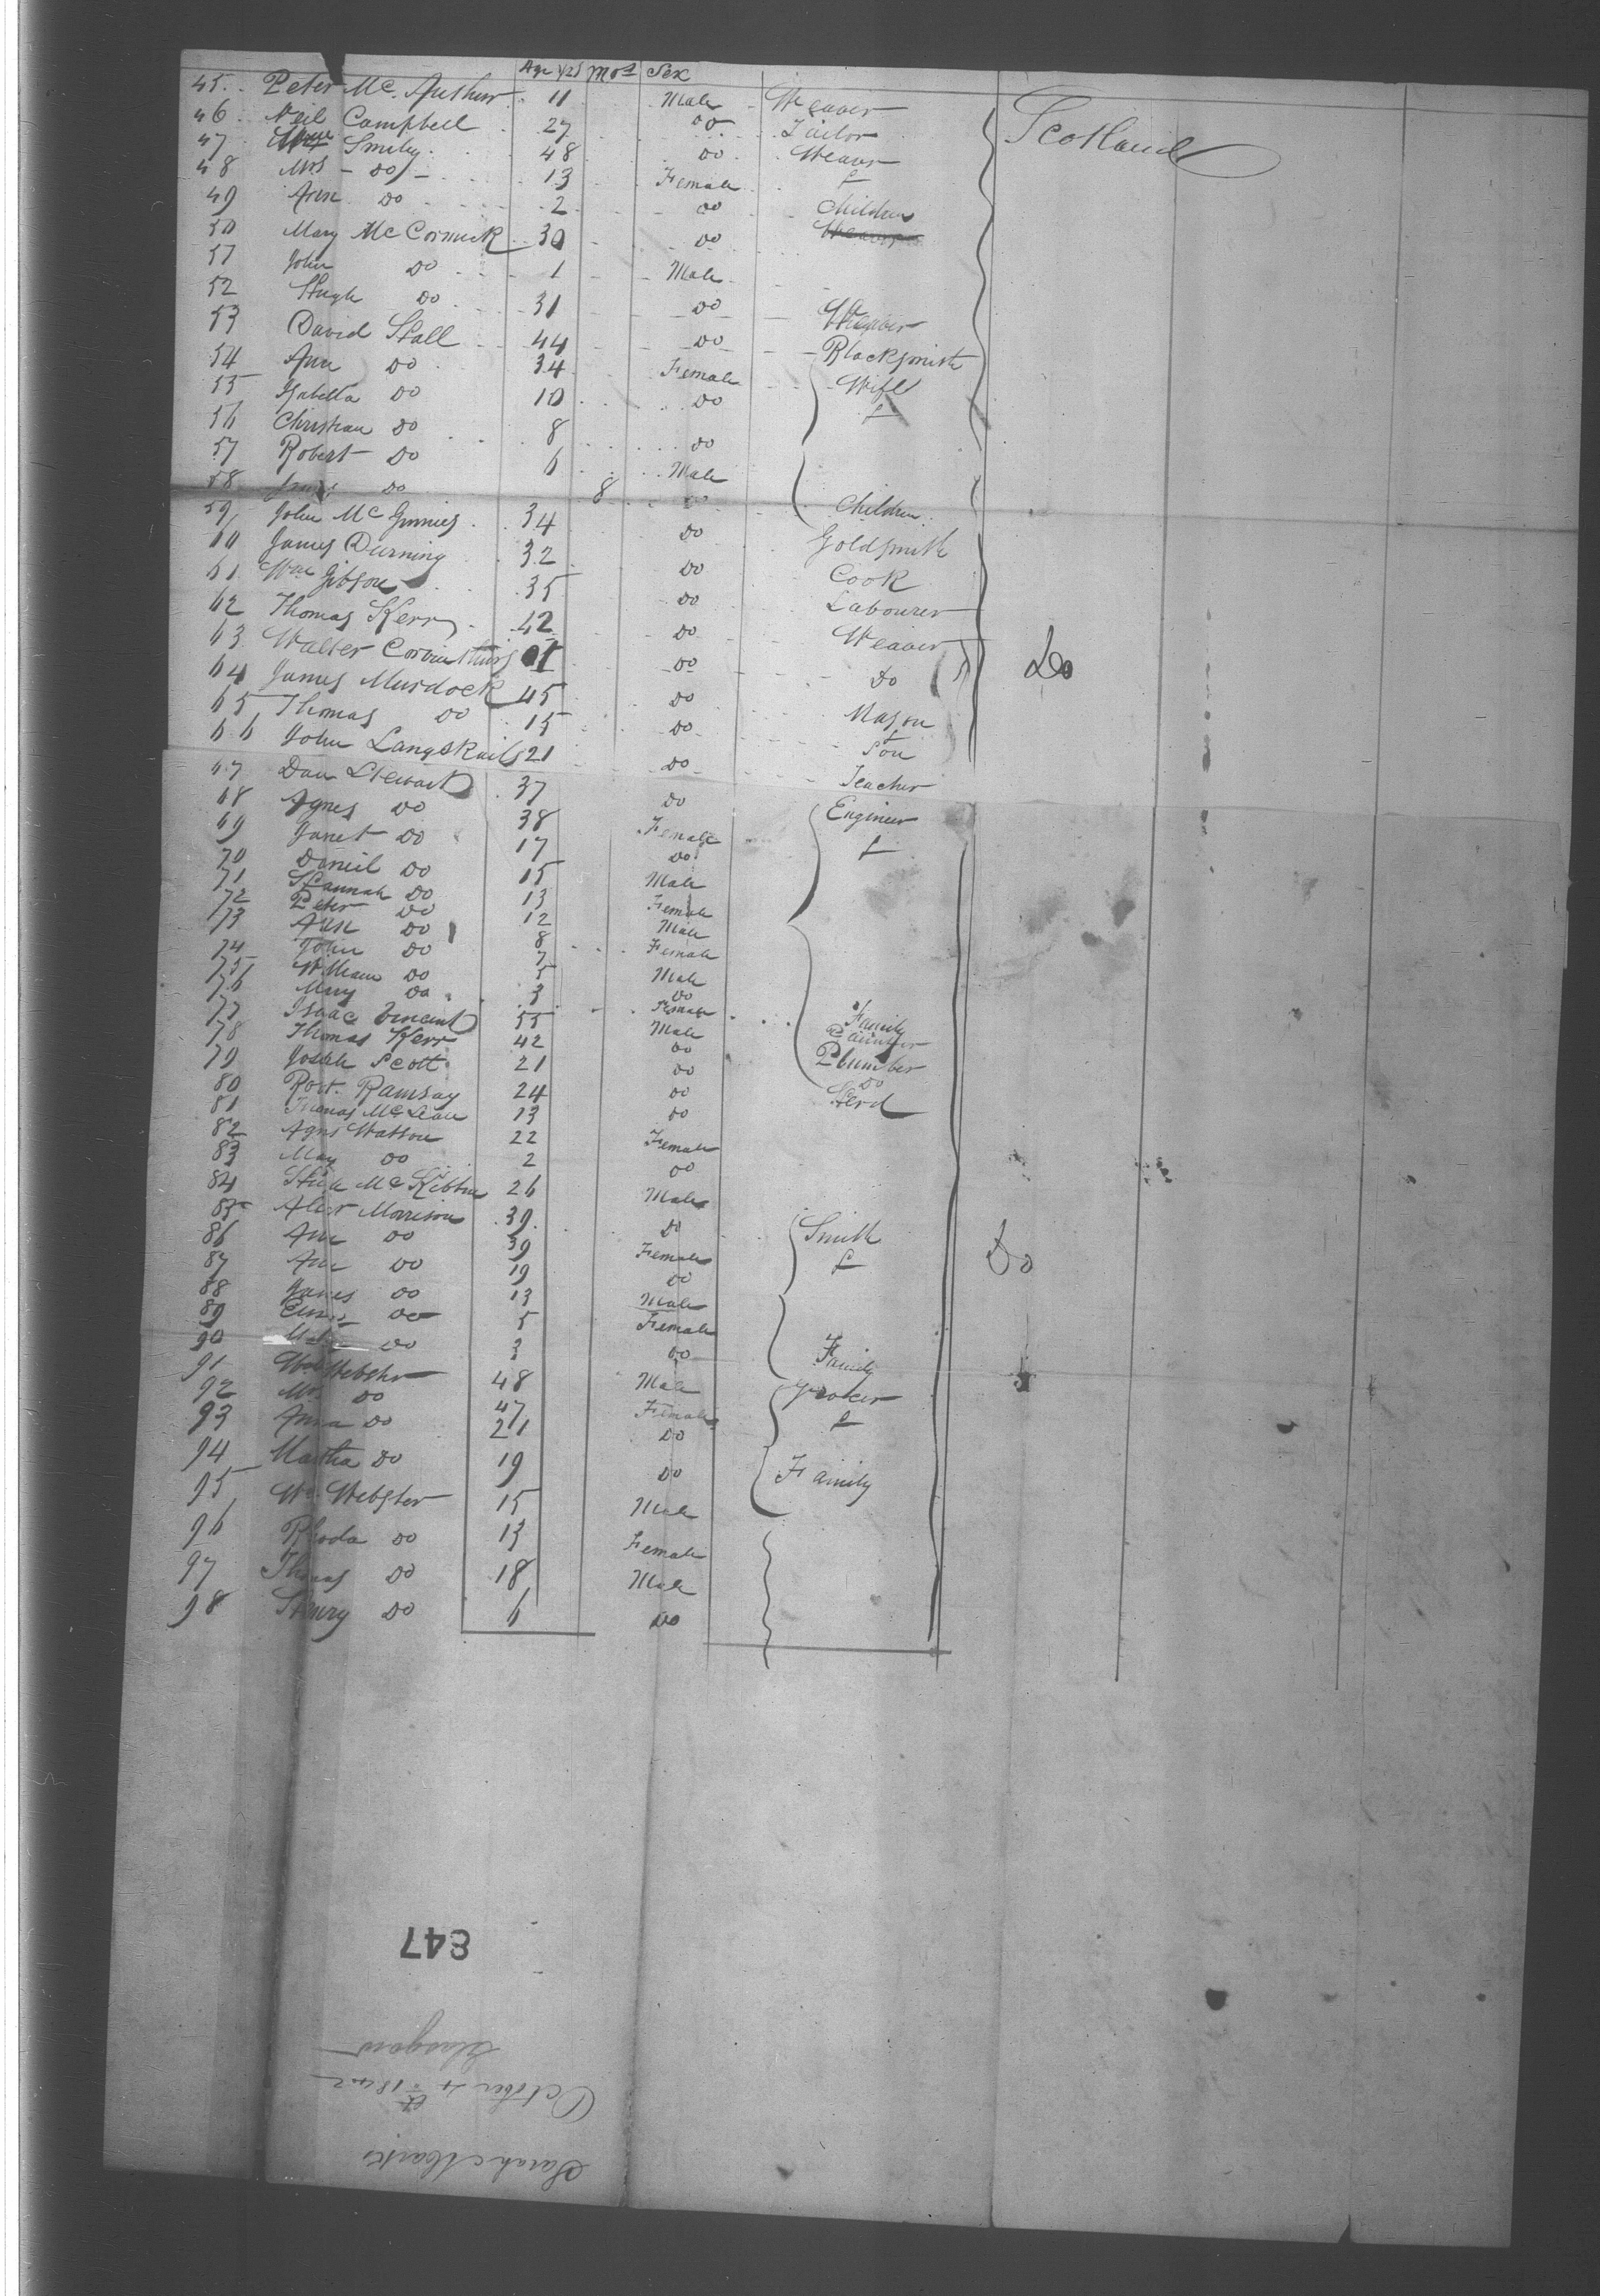 Age Yrs Mos Sex
45 Peter Mc Arthur 11 Male Weaver Scotland
46 Neil Campbell 27 Do Tailor
47 Smiley 48 Do Weaver
48 Mrs Do 13 Female
49 Ann Do 2 Do Children
50 Mary Mc Cormick 30 Do
51 John Do 1 Male
52 Hugh Do 31 Do Weaver
53 David Hall 44 Do Blacksmith
54 Ann Do 34 Female Wife
55 Isabella Do 10 Do
56 Christian Do 8 Do
57 Robert Do 6 Male
58 Do 8 Do Children
59 John Mc Ginnies 34 Do Goldsmith
60 James Durning 32 Do Cook
61 Wm Gibson 35 Do Labourer
62 Thomas Kerr 42 Do Weaver
63 Walter Do Do Do
64 James Murdock 45 Do Mason
65 Thomas Do 15 Do Son
66 John Langskail 21 Do Teacher
67 Dan Stewart 37 Do Engineer
68 Agnes Do 38 Female
69 Janet Do 17 Do
70 Daniel Do 15 Male
71 Hannah Do 13 Female
72 Peter Do 12 Male
73 Ann Do 8 Female
74 John Do 7 Male
75 William Do 5 Do
76 Mary Do 3 Female Family
77 Isaac Vincent 55 Male
78 Thomas Kerr 42 Do Plumber
79 Joseph Scott 21 Do Do
80 Robt. Ramsay 24 Do Herd
81 Thomas Mc Lean 13 Do
82 Agns Watson 22 Female
83 May Do 2 Do
84 Mc Kibbin 26 Male
85 Alexr Morrison 39 Do Smith
86 Ann Do 39 Female Do
87 Ann Do 19 Do
88 James Do 13 Male
89 Do 5 Female
90 Do 3 Do Family
91 Wm Webster 48 Male Grocer
92 Mrs Do 47 Female
93 Anna Do 21 Do
94 Martha Do 19 Do Family
95 Wm. Webster 15 Male
96 Rhoda Do 13 Female
97 Thomas Do 18 Male
98 Henry Do 6 Do
847
Glasgow
October 4th 1842
Sarah